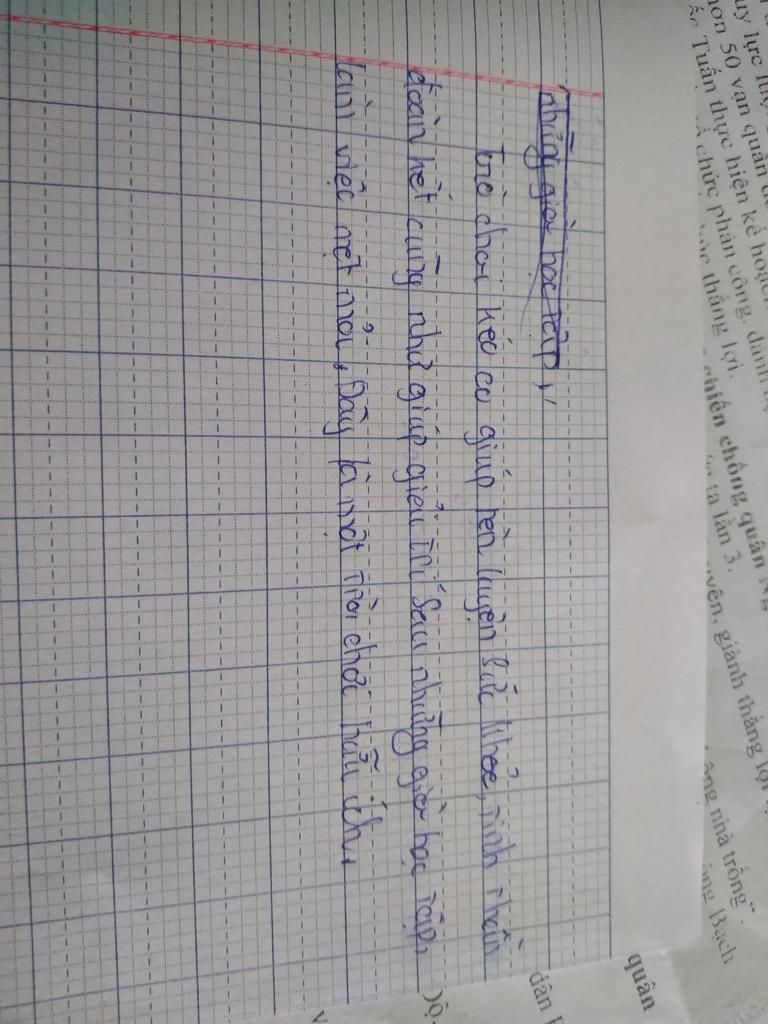 uy lực
hơn 50 vạn quân
Tuấn thực hiện kế hoạch
chức phân công, đánh
thắng lợi.
chiến chống quân Ng
ta lần 3.
giành thắng lợi
nhà trống".
Bạch
quân
dân
những giờ học tập,
trò chơi kéo co giúp rèn luyện sức khỏe, tinh thần
đoàn kết cũng như giúp giải trí sau những giờ học tập,
làm việc mệt mỏi, Đây là một trò chơi hữu ích,